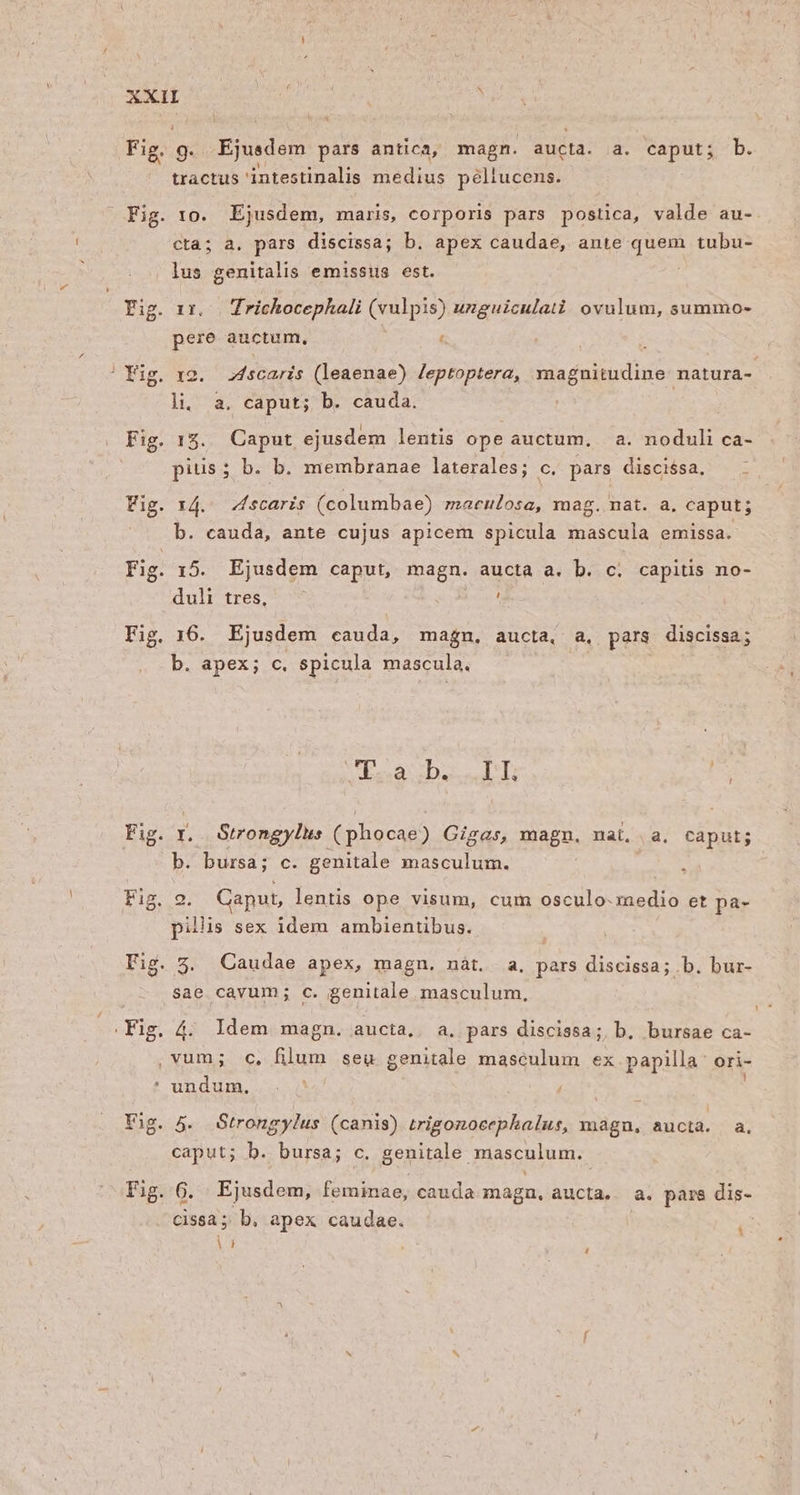 XXII
Fig. 9. Ejusdem pars antica, magn. aucta. a. caput; b.
tractus intestinalis medius pellucens.
Fig. 10. Ejusdem, maris, corporis pars postica, valde au-
cta; a. pars discissa; b. apex caudae, ante quem tubu-
lus genitalis emissus est.
Fig. 11. Trichocephali (vulpis) unguiculati ovulum, summo-
pere auctum.
Fig. 12. Ascaris (leaenae) leptoptera, magnitudine natura-
li, a. caput; b. cauda.
Fig. 13. Caput ejusdem lentis ope auctum. a. noduli ca-
pitis; b. b. membranae laterales; c. pars discissa.
Fig. 14. Ascaris (columbae) maculosa, mag. nat. a. caput;
b. cauda, ante cujus apicem spicula mascula emissa.
Fig. 15. Ejusdem caput, magn. aucta a. b. c. capitis no-
duli tres.
Fig. 16. Ejusdem cauda, magn. aucta, a. pars discissa;
b. apex; c. spicula mascula.
Tab. II.
Fig. 1. Strongylus (phocae) Gigas, magn. nat. a. caput;
b. bursa; c. genitale masculum.
Fig. 2. Caput, lentis ope visum, cum osculo medio et pa-
pillis sex idem ambientibus.
Fig. 3. Caudae apex, magn. nat. a. pars discissa; b. bur-
sae cavum; c. genitale masculum.
Fig. 4. Idem magn. aucta, a. pars discissa; b. bursae ca-
vum; c. filum seu genitale masculum ex papilla ori-
undum.
Fig. 5. Strongylus (canis) trigonocephalus, magn. aucta. a.
caput; b. bursa; c. genitale masculum.
Fig. 6. Ejusdem, feminae, cauda magn. aucta. a. pars dis-
cissa; b. apex caudae.